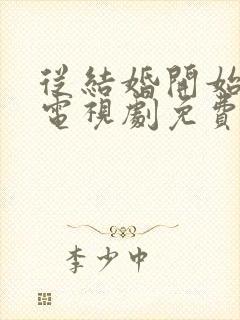 從結婚開始
電視劇免費
李少中